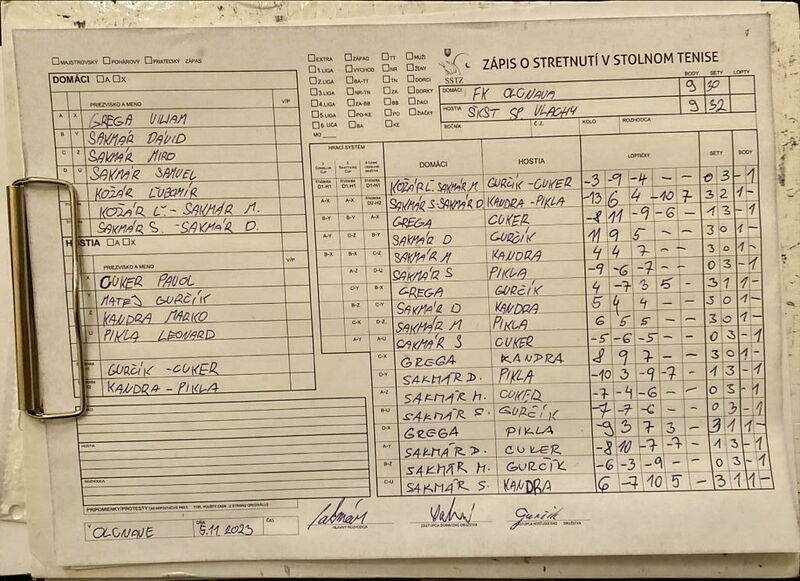 MAJSTROVSKÝ POHÁROVÝ PRIATEĽSKÝ ZÁPAS
DOMÁCI A X
PRIEZVISKO A MENO V/P
A X GREGA VILIAM
B Y SAKMÁR DÁVID
C Z SAKMÁR MIRO
D U SAKMÁR SAMUEL
KOŽÁR ĽUBOMÍR
KOŽÁR Ľ. - SAKMÁR M.
SAKMÁR S. - SAKMÁR D.
HOSTIA A X
PRIEZVISKO A MENO V/P
CUKER PAVOL
MATEJ GURČÍK
KANDRA MARKO
PIKLA LEONARD
GURČÍK - CUKER
KANDRA - PIKLA
HOSTIA
ROZHODCA
PRIPOMIENKY/PROTESTY
V OLCNAVE DŇA 5.11.2023 ČAS
EXTRA ZÁPAD TT MUŽI
1. LIGA VÝCHOD NR ŽENY
2. LIGA BA-TT TN DORCI
3. LIGA NR-TN ZA DORKY
4. LIGA ZA-BB BB ŽIACI
5. LIGA PO-KE PO ŽIAČKY
6. LIGA BA KE
MO
SSTZ
ZÁPIS O STRETNUTÍ V STOLNOM TENISE
BODY SETY LOPTY
DOMÁCI FK OLCNAVA 9 30
HOSTIA ŠKST SP VLACHY 9 32
ROČNÍK Č.Z. KOLO ROZHODCA
HRACÍ SYSTÉM DOMÁCI HOSTIA LOPTIČKY SETY BODY
D1-H1 D1-H1 D1-H1 KOŽÁR Ľ. SAKMÁR M. GURČÍK - CUKER -3 -9 -4 - - 0 3 - 1
A-X A-X D2-H2 SAKMÁR S. - SAKMÁR D. KANDRA - PIKLA -13 6 4 -10 7 3 2 1 -
B-Y B-Y A-X GREGA CUKER -8 11 -9 -6 - 1 3 - 1
A-Y C-Z B-Y SAKMÁR D GURČÍK 11 9 5 3 0 1 -
B-X B-X C-Z SAKMÁR M KANDRA 4 4 7 - - 3 0 1 -
A-Z D-U SAKMÁR S PIKLA -9 -6 -7 - - 0 3 - 1
C-Y B-X GREGA GURČÍK 4 -7 3 5 - 3 1 1 -
B-Z C-Y SAKMÁR D KANDRA 5 4 4 - - 3 0 1 -
C-X D-Z SAKMÁR M PIKLA 6 5 5 - - 3 0 1 -
A-Y A-U SAKMÁR S CUKER -5 -6 -5 - - 0 3 - 1
C-X GREGA KANDRA 8 9 7 - - 3 0 1 -
D-Y SAKMÁR D. PIKLA -10 3 -9 -7 - 1 3 - 1
A-Z SAKMÁR M. CUKER -7 -4 -6 - - 0 3 - 1
B-U SAKMÁR S. GURČÍK -7 -7 -6 - - 0 3 - 1
D-X GREGA PIKLA -9 3 7 3 - 3 1 1 -
A-Y SAKMÁR D. CUKER -8 10 -7 -7 - 1 3 - 1
B-Z SAKMÁR M. GURČÍK -6 -3 -9 - - 0 3 - 1
C-U SAKMÁR S. KANDRA 6 -7 10 5 - 3 1 1 -
Sakmár
Gurčík
HLAVNÝ ROZHODCA ZÁSTUPCA DOMÁCEHO DRUŽSTVA ZÁSTUPCA HOSŤUJÚCEHO DRUŽSTVA